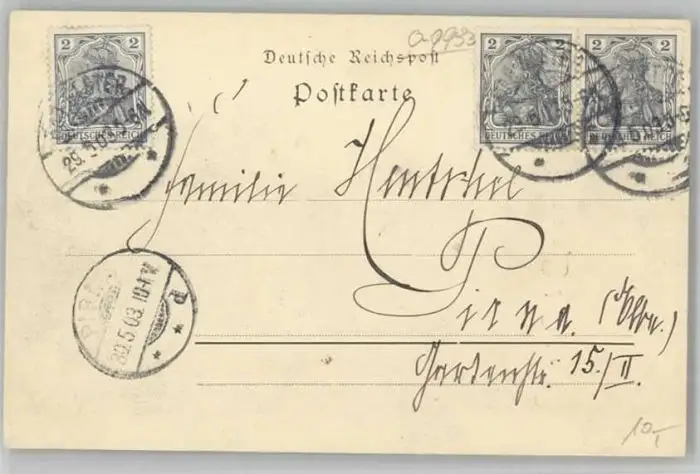 a 9953
2 2 2
Deutsche Reichspost
Postkarte
29.5.03
DEUTSCHES REICH DEUTSCHES REICH DEUTSCHES REICH
Familie Hentschel
Pirna. (Elbe.)
PIRNA
30.5.03. 10-11.V.
p
Gartenstr. 15/II.
10,-